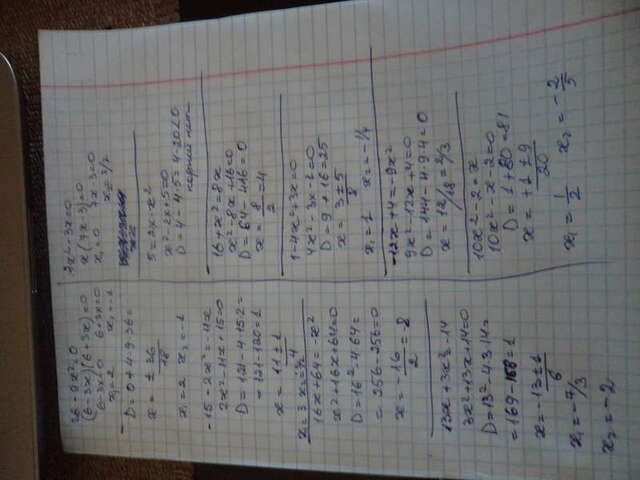 36-9x²=0
(6-3x)(6+3x)=0
6-3x=0 6+3x=0
x₁=2 x₂=-2
D=0+4·9·36=
x=±36/18
x₁=2 x₂=-2
-15=2x²-11x
2x²-11x+15=0
D=121-4·15·2=
=121-120=1
x=11±1/4
x₁=3 x₂=5/2
16x+64=-x²
x²+16x+64=0
D=16²-4·64=
=256-256=0
x=-16/2=-8
13x+3x²=-14
3x²+13x+14=0
D=13²-4·3·14=
=169-168=1
x=-13±1/6
x₁=-7/3
x₂=-2
7x²-3x=0
x(7x-3)=0
x₁=0 7x-3=0
x=3/7
5=2x-x²
x²-2x+5=0
D=4-4·5=4-20<0
корней нет
16+x²=8x
x²-8x+16=0
D=64-4·16=0
x=8/2=4
1-4x²+3x=0
4x²-3x-1=0
D=9+16=25
x=3±5/8
x₁=1 x₂=-1/4
-12x+4=-9x²
9x²-12x+4=0
D=144-4·9·4=0
x=12/18=2/3
10x²-2=x
10x²-x-2=0
D=1+80=81
x=+1±9/20
x₁=1/2 x₂=-2/5